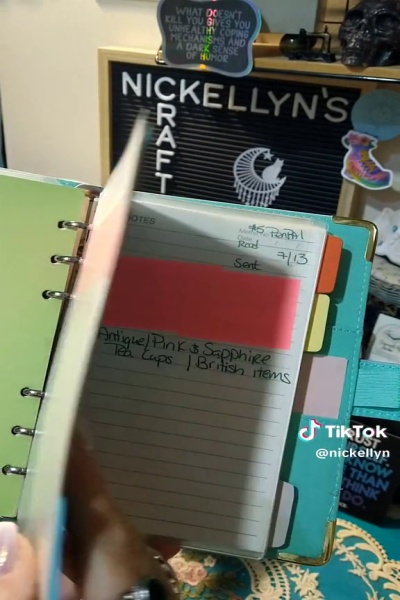 WHAT DOESN'T
KILL YOU GIVES YOU
UNHEALTHY COPING
MECHANISMS AND
A DARK SENSE
OF HUMOR
NICKELLYN'S
CRAFT
NOTES
$5 PenPal
Read 7/13
Sent
Antique/Pink & Sapphire
Tea Cups / British items
TikTok
@nickellyn
JUST
KNOW
THAN
DO.